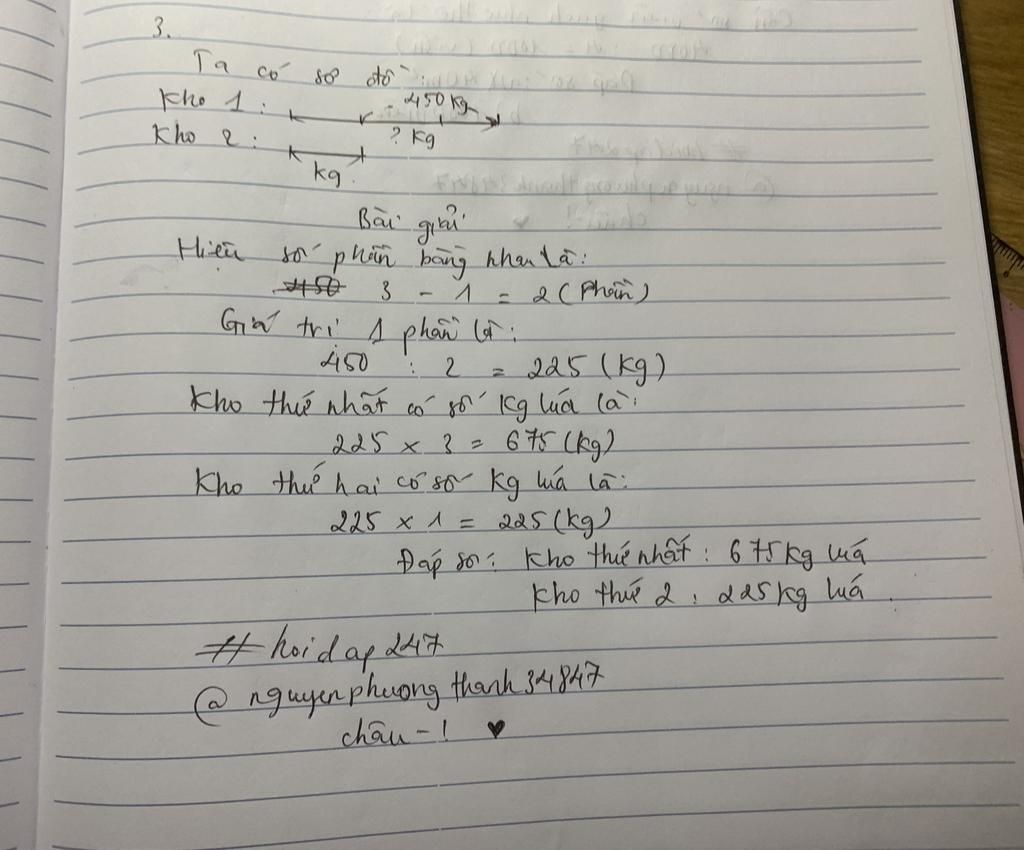 3.
Ta có sơ đồ:
450 kg
Kho 1:
? kg
Kho 2:
kg
Bài giải
Hiệu số phần bằng nhau là:
3 - 1 = 2 (phần)
Giá trị 1 phần là:
450 : 2 = 225 (kg)
Kho thứ nhất có số kg lúa là:
225 x 3 = 675 (kg)
Kho thứ hai có số kg lúa là:
225 x 1 = 225 (kg)
Đáp số: Kho thứ nhất: 675 kg lúa
Kho thứ 2: 225 kg lúa.
# hoidap247
@ nguyenphuongthanh34847
châu - ! ♥